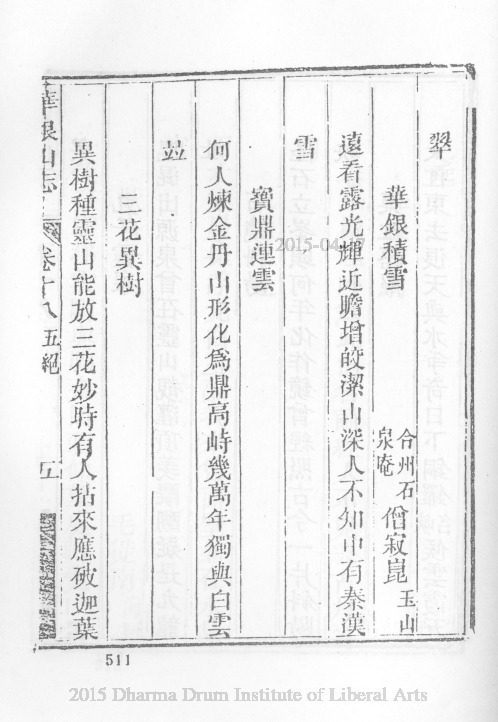 翠
華銀積雪
合州石泉庵
僧寂崑玉山
遠看露光輝近瞻增皎潔山深人不知中有秦漢
雪
寶鼎連雲
何人煉金丹山形化爲鼎高峙幾萬年獨與白雲
竝
三花異樹
異樹種靈山能放三花妙時有人拈來應破迦葉
華銀山志
卷十八
五絕
五
511
2015 Dharma Drum Institute of Liberal Arts